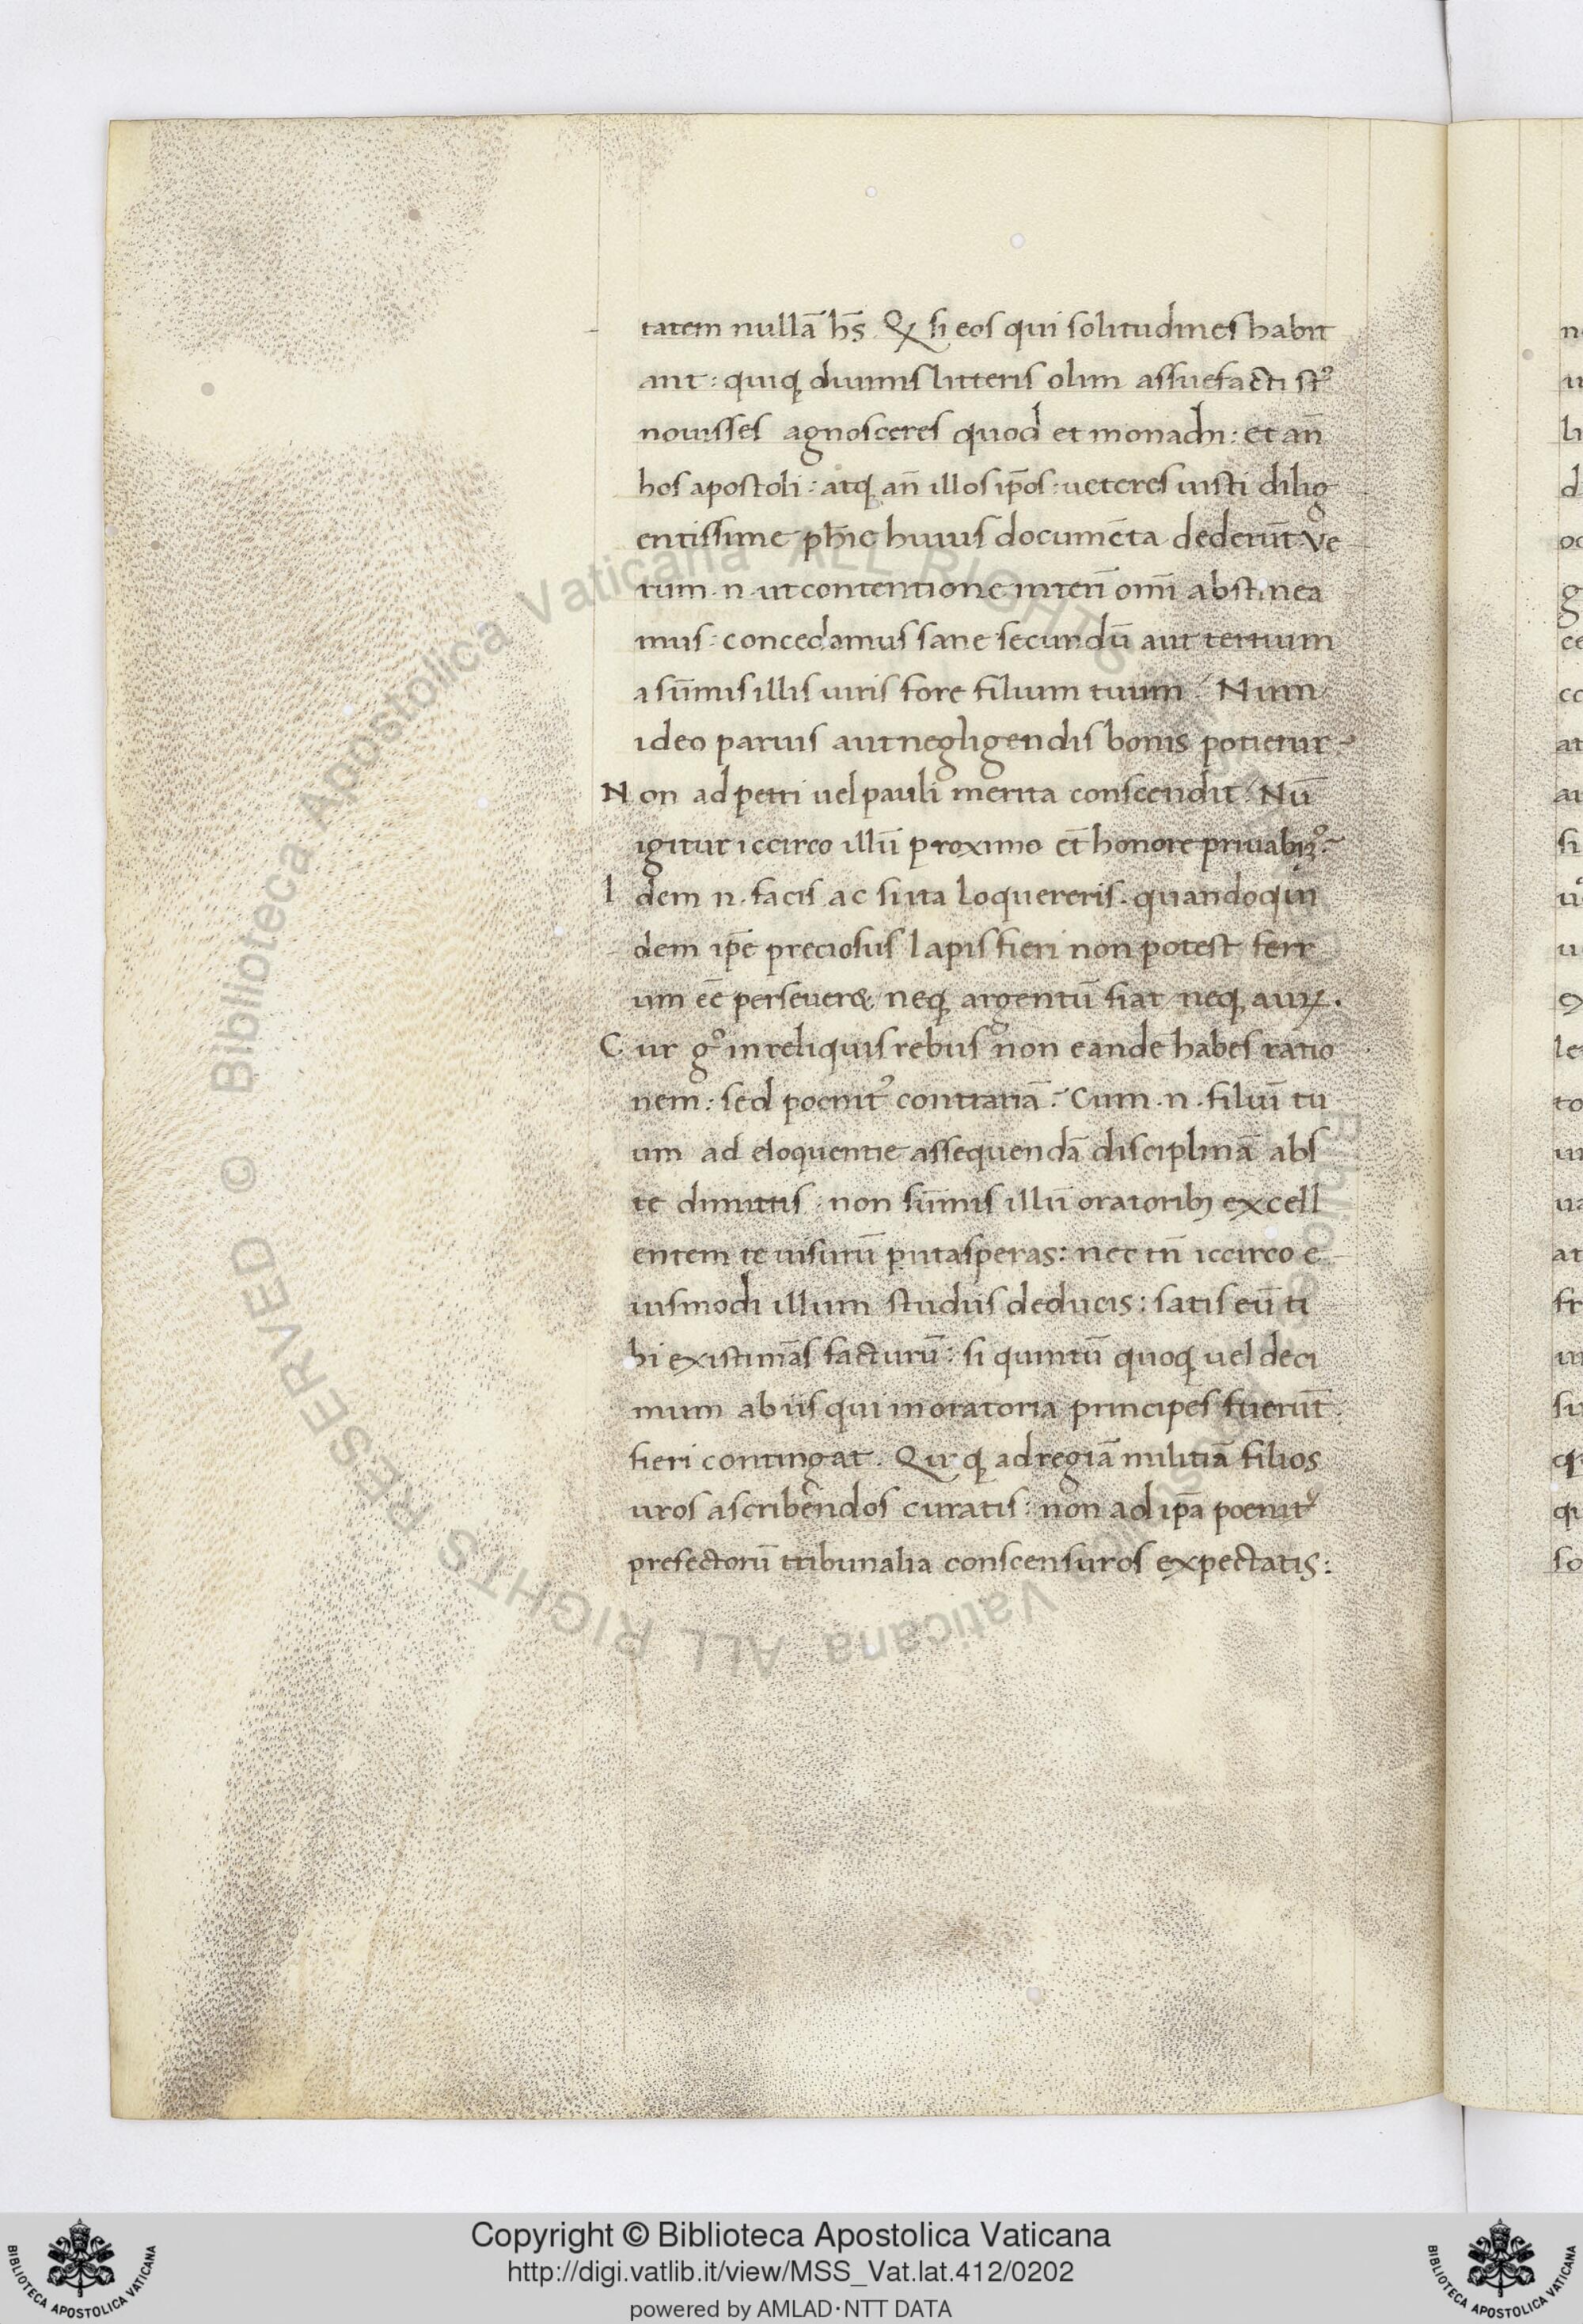 tatem nullā hn̄s. Qꝫ si eos qui solitudines habit
ant: quiqꝫ diuinis litteris olim assuefacti st᷒
nouisses agnosceres quod et monachi: et an̄
hos apostoli: atqꝫ an̄ illos ip̄os: ueteres iusti dilig
entissime ph̄ie huius documēta dederūt. Ve
rum .n. ut contentione interī omī abstinea
mus: concedamus sane secundū aut tertium
a sūmis illis uiris fore filium tuum. Num
ideo paruis aut negligendis bonis potietur?
Non ad petri uel pauli merita conscendit. Nū
igitur iccirco illū proximo et̄ honore priuabim᷒?
Idem .n. facis ac si ita loquereris. quandoqui
dem ip̄e preciosus lapis fieri non potest ferr
um eē perseueret neqꝫ argentū fiat neqꝫ auꝝ.
Cur gͦ in reliquis rebus non eandē habes ratio
nem: sed poenit᷒ contrariā? Cum .n. filiuī tu
um ad eloquentie assequendā disciplinā abs
te dimittis: non sūmis illū oratoribꝫ excell
entem te uisurū putas speras: nec tn̄ iccirco e
iusmodi illum studiis deducis: satis eū ti
bi existimās facturū: si quintū quoqꝫ uel deci
mum ab iis qui in oratoria principes fuerūt
fieri contingat. Quiqꝫ ad regiā militiā filios
uros ascribendos curatis: non ad ip̄a poenit᷒
prefectorū tribunalia conscensuros expectatis:
© Biblioteca Apostolica Vaticana ALL RIGHTS RESERVED
Copyright © Biblioteca Apostolica Vaticana
http://digi.vatlib.it/view/MSS_Vat.lat.412/0202
powered by AMLAD·NTT DATA
BIBLIOTECA APOSTOLICA VATICANA
BIBLIOTECA APOSTOLICA VATICANA